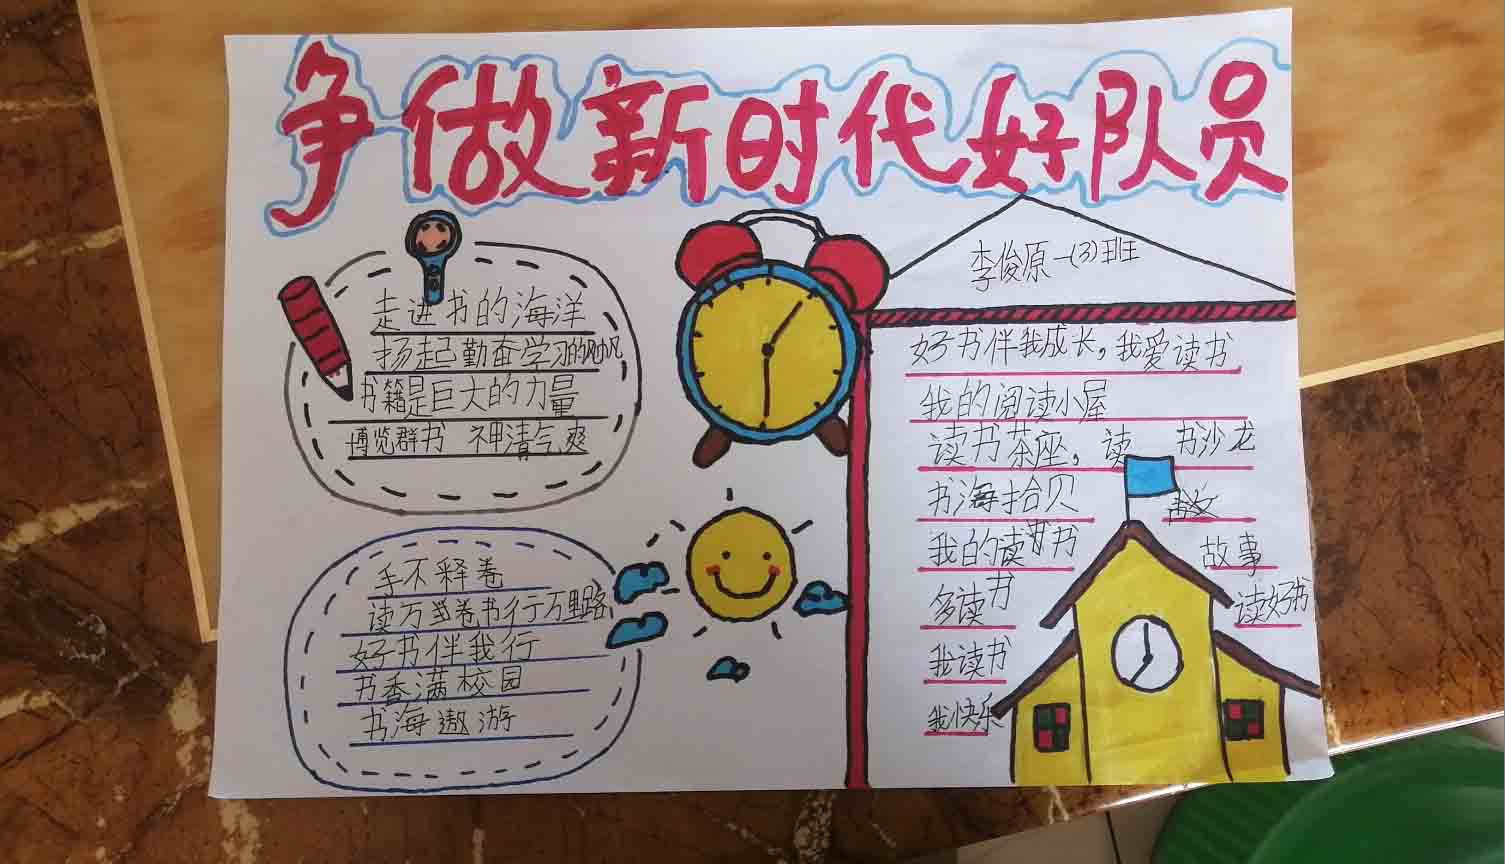 争做新时代好队员
走进书的海洋
扬起勤奋学习的风帆
书籍是巨大的力量
博览群书 神清气爽
手不释卷
读万卷书行万里路
好书伴我行
书香满校园
书海遨游
李俊原一(3)班
好书伴我成长,我爱读书
我的阅读小屋
读书茶座,读 书沙龙
书海拾贝
我的读书
故事
多读书
读好书
我读书
我快乐